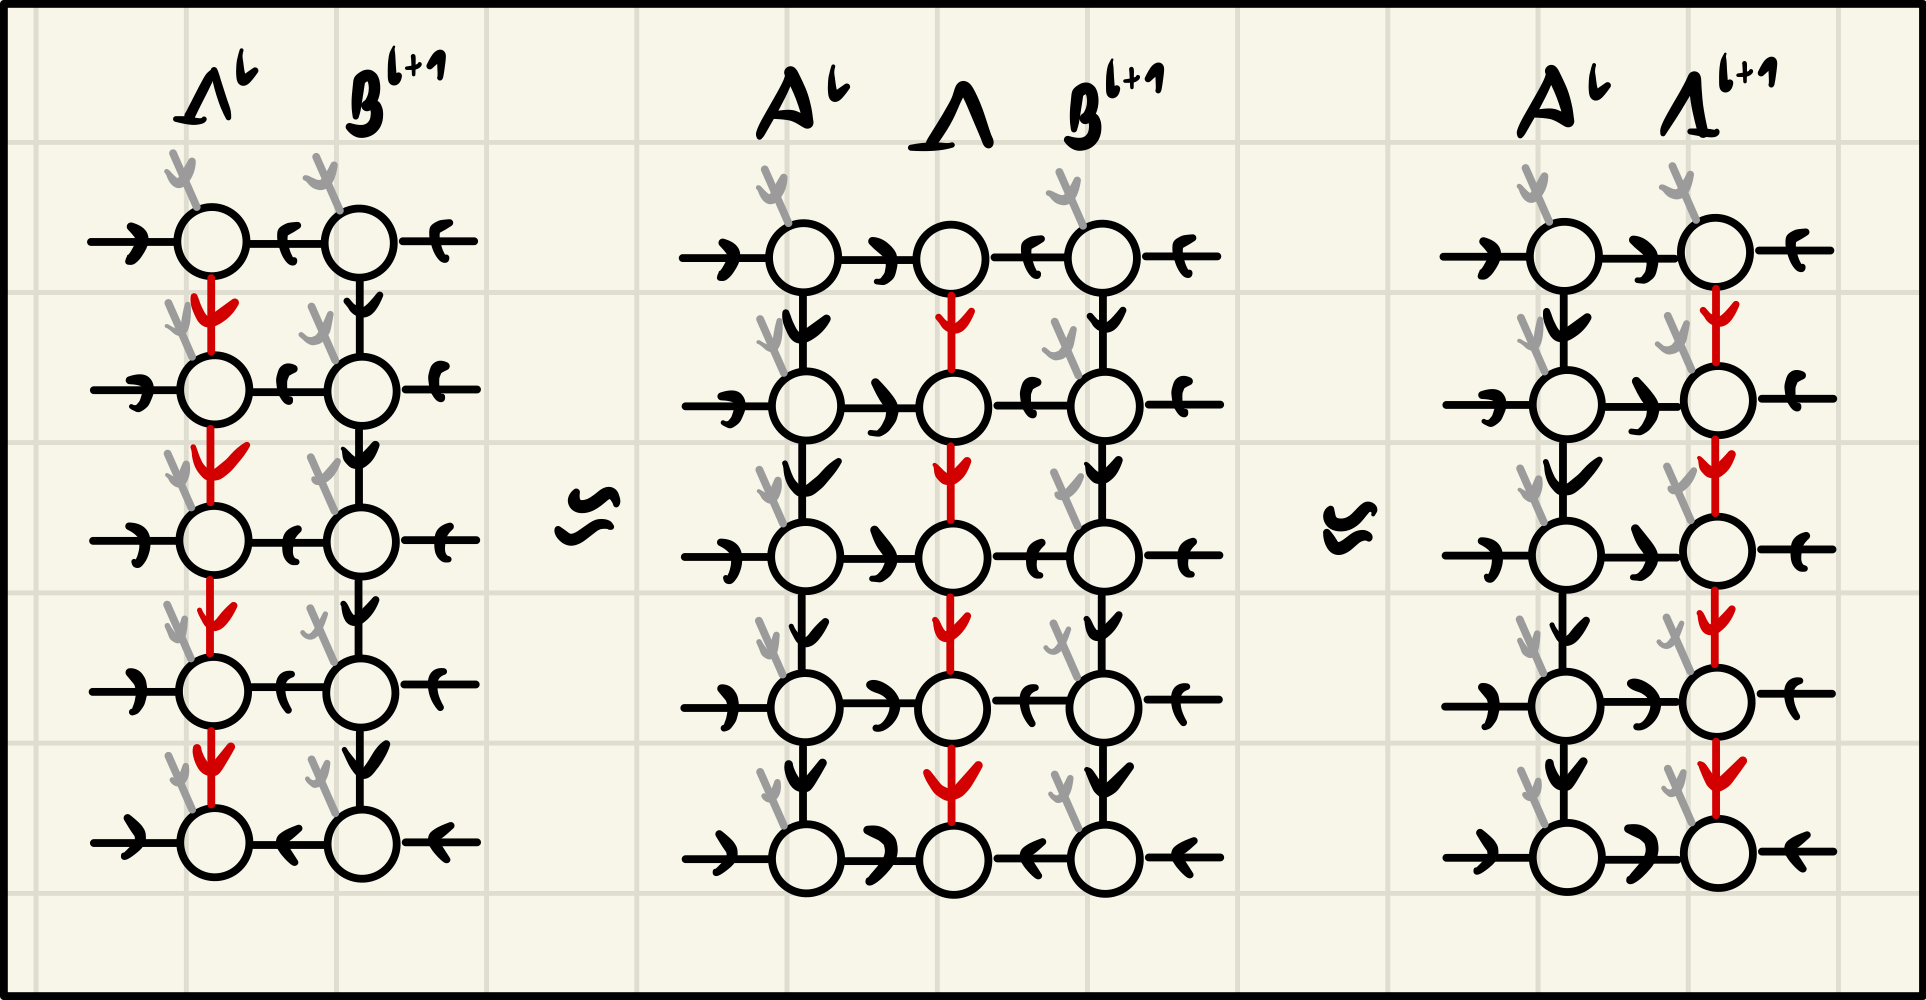 Λ^ℓ B^ℓ+1 A^ℓ Λ B^ℓ+1 A^ℓ Λ^ℓ+1
≈ ≈